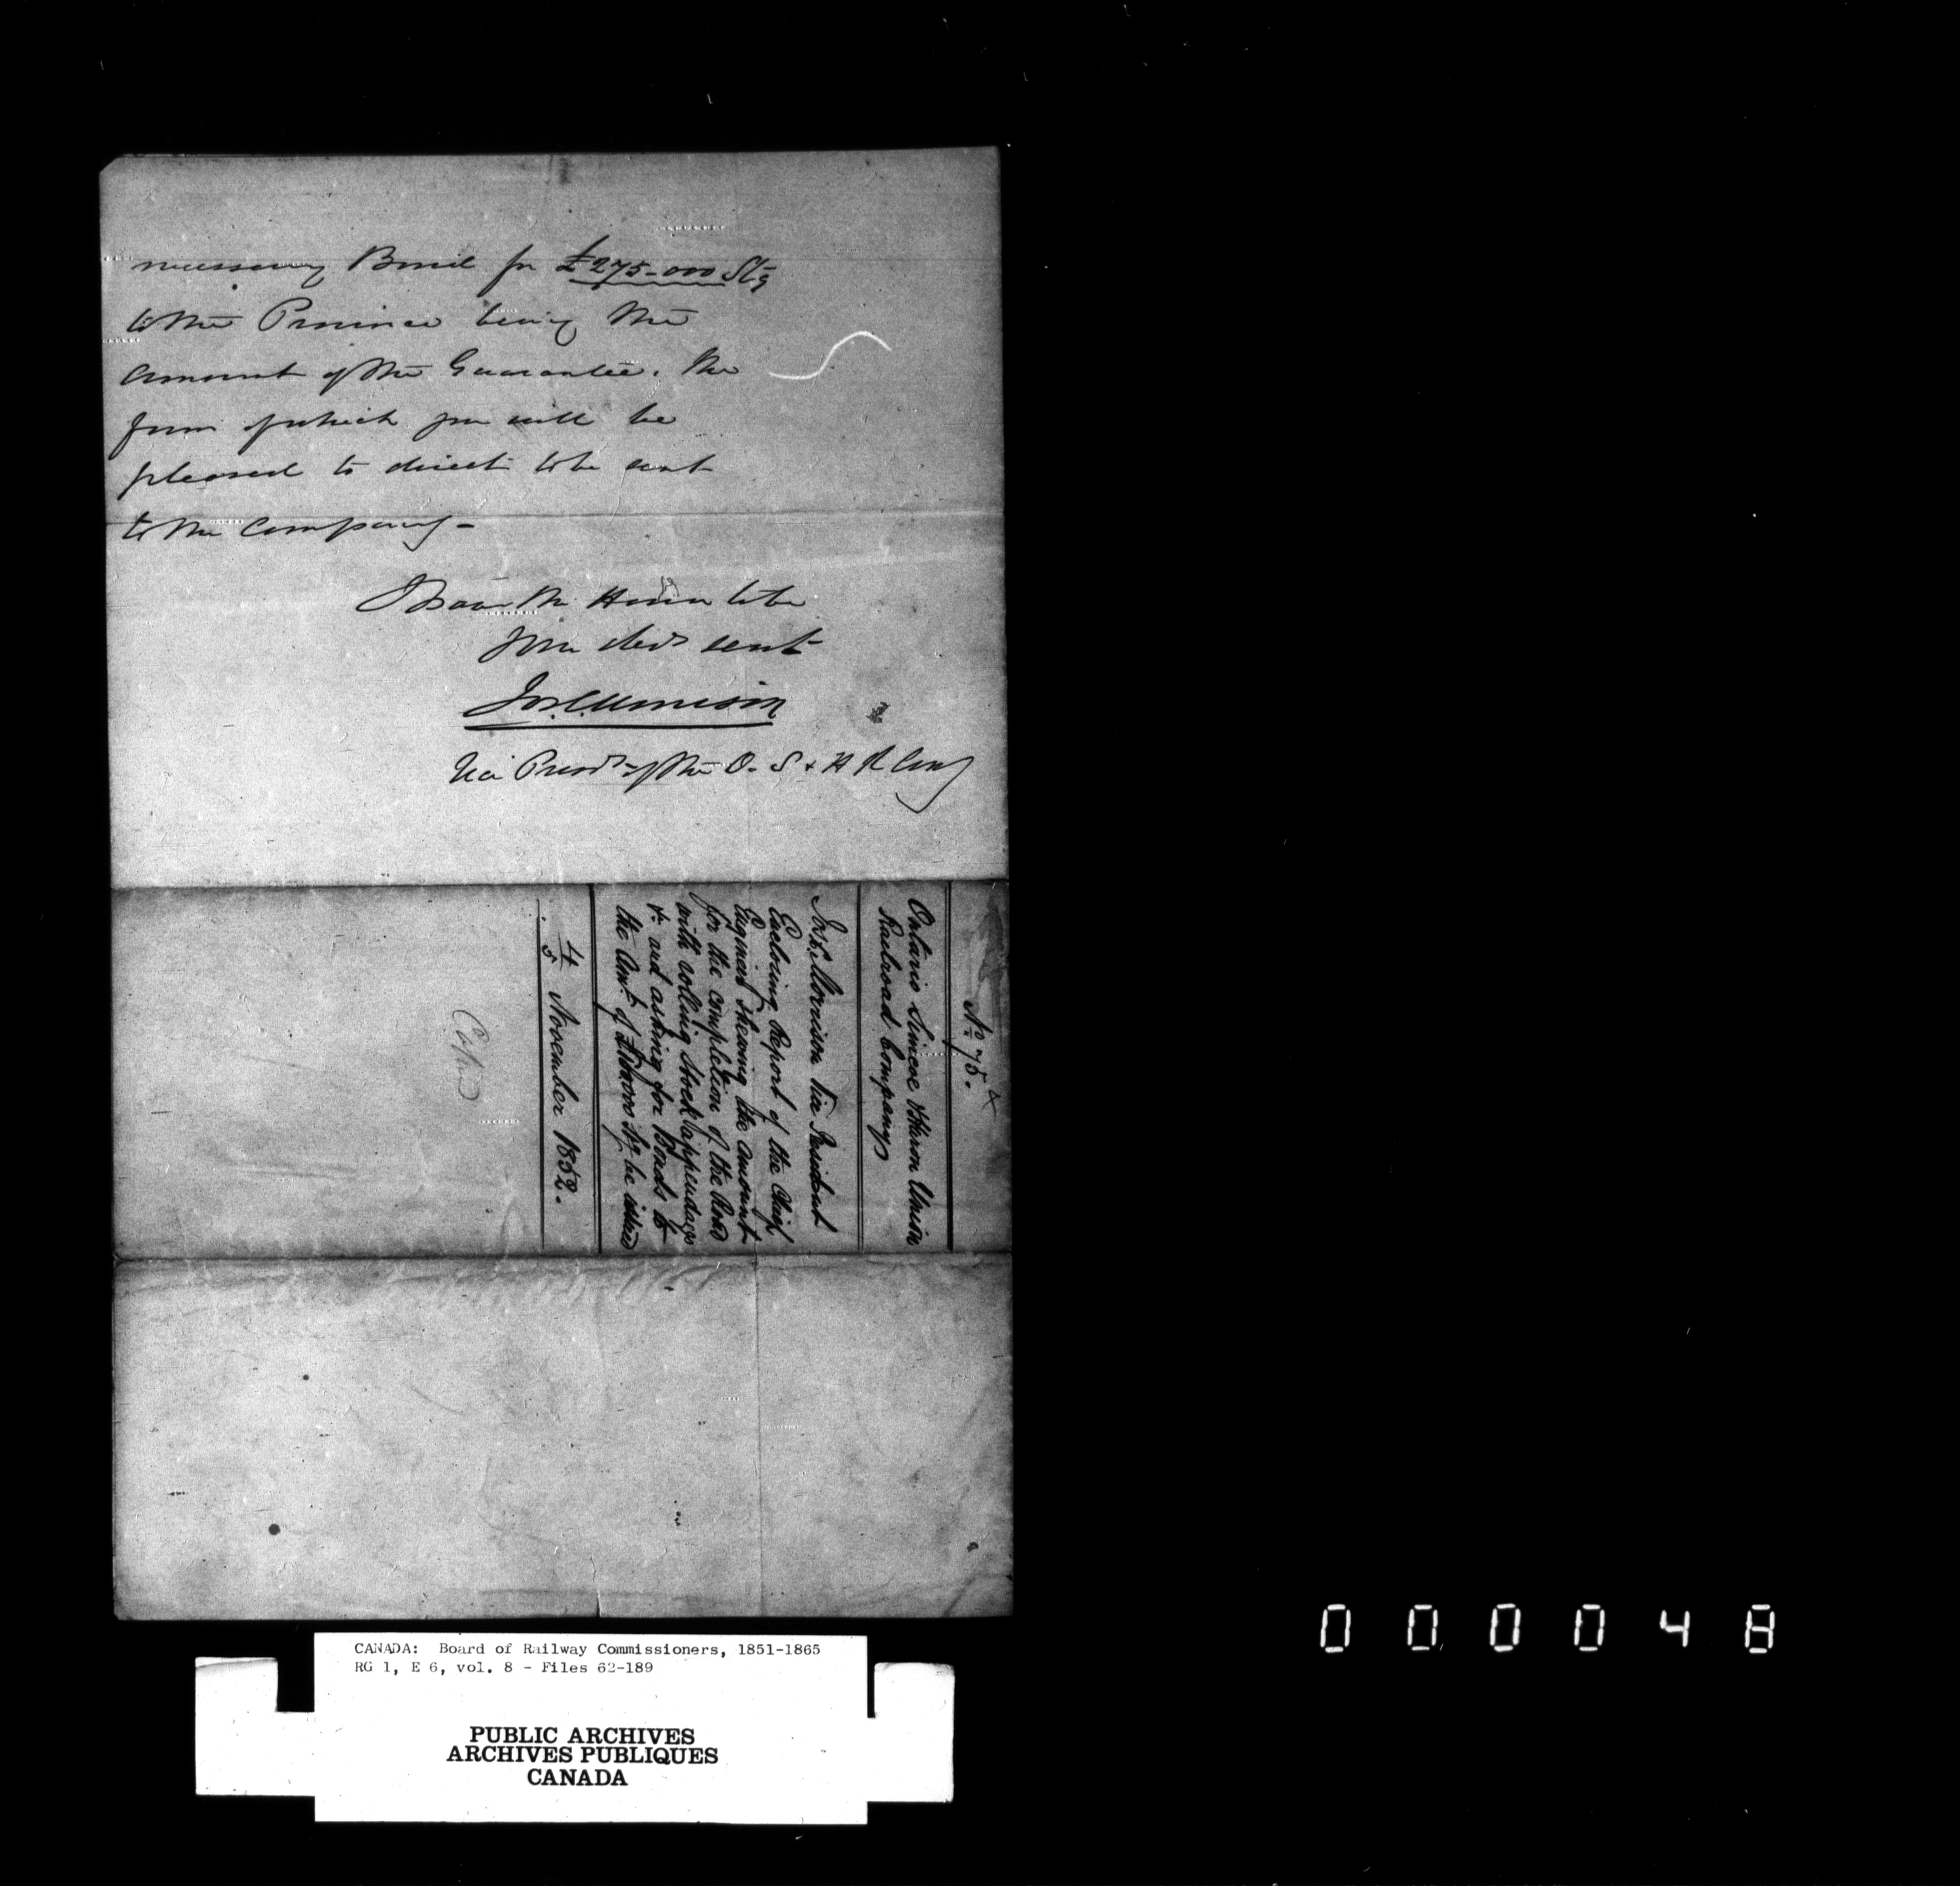 necessary Bond for £275-000 Stg
to the Province being the
amount of the Guarantee. the
form of which you will be
pleased to direct to be sent
to the Company-
I have the Honor to be
your obed sevt
Jos. C. Morrison
Vice Presdt of the O. S & H R Comy
No 75.
Ontario Simcoe & Huron Union
Railroad Company
Jos. C. Morrison Vice President
Enclosing Report of the Chief
Engineer shewing the amount
for the completion of the Road
with rolling Stock appendages
&c and asking for Bonds to
the Amt. of Stg be issued
4/5 November 1852.
Copied
CANADA: Board of Railway Commissioners, 1851-1865
RG 1, E 6, vol. 8 - Files 62-189
PUBLIC ARCHIVES
ARCHIVES PUBLIQUES
CANADA
000048